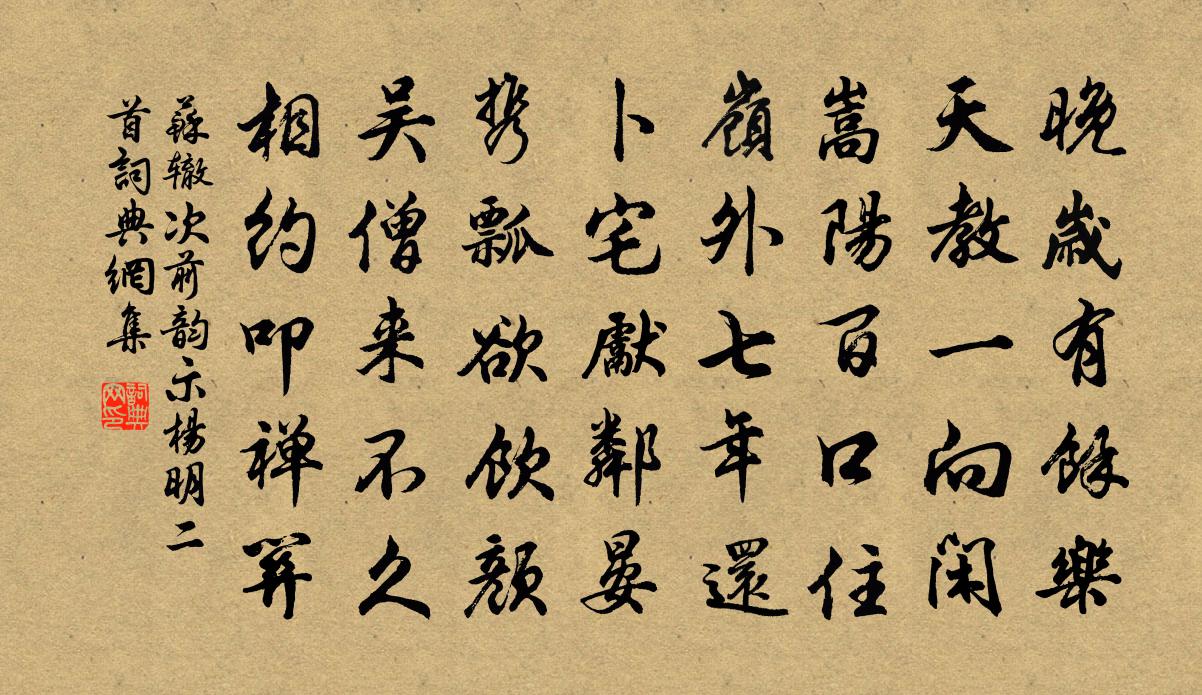 晚歲有餘樂
天教一向閑
嵩陽百口住
嶺外七年還
卜宅獻鄰晏
携瓢欲飲顏
吴僧来不久
相約叩禅關
蘇辙次前韵示楊明二
首詞典網集
詞典网印